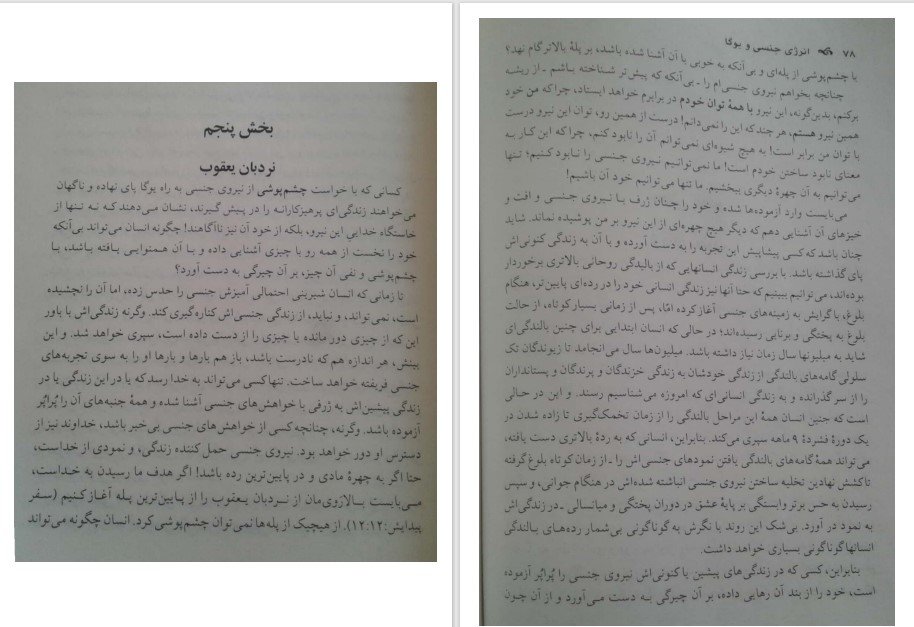 بخش پنجم
نردبان یعقوب
کسانی که با خواست چشم‌پوشی از نیروی جنسی به راه یوگا پای نهاده و ناگهان
می‌خواهند زندگی‌ای پرهیزکارانه را در پیش گیرند، نشان می‌دهند که نه تنها از
خاستگاه خدایی این نیرو، بلکه از خود آن نیز ناآگاهند! چگونه انسان می‌تواند بی‌آنکه
خود را نخست از همه رو با چیزی آشنایی داده و با آن همنوایی یافته باشد، با
چشم‌پوشی و نفی آن چیز، بر آن چیرگی به دست آورد؟
تا زمانی که انسان شیرینی احتمالی آمیزش جنسی را حدس زده، اما آن را نچشیده
است، نمی‌تواند، و نباید، از زندگی جنسی‌اش کناره‌گیری کند. وگرنه زندگی‌اش با باور
این که از چیزی دور مانده یا چیزی را از دست داده است، سپری خواهد شد. و این
بینش، هر اندازه هم که نادرست باشد، باز هم بارها و بارها او را به سوی تجربه‌های
جنسی فریفته خواهد ساخت. تنها کسی می‌تواند به خدا رسد که یا در این زندگی یا در
زندگی پیشین‌اش به ژرفی با خواهش‌های جنسی آشنا شده و همهٔ جنبه‌های آن را پُراپُر
آزموده باشد. وگرنه، چنانچه کسی از خواهش‌های جنسی بی‌خبر باشد، خداوند نیز از
دسترس او دور خواهد بود. نیروی جنسی حمل کننده زندگی، و نمودی از خداست،
حتا اگر به چهرهٔ مادی و در پایین‌ترین رده باشد! اگر هدف ما رسیدن به خداست،
می‌بایست بالاروی‌مان از نردبان یعقوب را از پایین‌ترین پله آغاز کنیم (سفر
پیدایش:۱۲:۱۲). از هیچیک از پله‌ها نمی‌توان چشم‌پوشی کرد. انسان چگونه می‌تواند
۷۸ انرژی جنسی و یوگا
با چشم‌پوشی از پله‌ای و بی‌آنکه به خوبی با آن آشنا شده باشد، بر پلهٔ بالاتر گام نهد؟
چنانچه بخواهم نیروی جنسی‌ام را ـ بی آنکه که پیش‌تر شناخته باشم ـ از ریشه
برکنم، بدین‌گونه، این نیرو با همهٔ توان خودم در برابرم خواهد ایستاد، چرا که من خود
همین نیرو هستم، هر چند که این را نمی‌دانم! درست از همین رو، توان این نیرو درست
با توان من برابر است! به هیچ شیوه‌ای نمی‌توانم آن را نابود کنم، چرا که این کار به
معنای نابود ساختن خودم است! ما نمی‌توانیم نیروی جنسی را نابود کنیم؛ تنها
می‌توانیم به آن چهرهٔ دیگری ببخشیم. ما تنها می‌توانیم خود آن باشیم!
می‌بایست وارد آزموده‌ها شده و خود را چنان ژرف با نیروی جنسی و افت و
خیزهای آن آشنایی دهم که دیگر هیچ چهره‌ای از این نیرو بر من پوشیده نماند. شاید
چنان باشد که کسی پیشاپیش این تجربه را به دست آورده و با آن به زندگی کنونی‌اش
پای گذاشته باشد. با بررسی زندگی انسانهایی که از بالیدگی روحانی بالاتری برخوردار
بوده‌اند، می‌توانیم ببینیم که حتا آنها نیز زندگی انسانی خود را در رده‌ای پایین‌تر، هنگام
بلوغ، با گرایش به زمینه‌های جنسی آغاز کرده امّا، پس از زمانی بسیار کوتاه، از حالت
بلوغ به پختگی و برنایی رسیده‌اند؛ در حالی که انسان ابتدایی برای چنین بالندگی‌ای
شاید به میلیونها سال زمان نیاز داشته باشد. میلیون‌ها سال می‌انجامد تا زیوندگان تک
سلولی گامه‌های بالندگی از زندگی خودشان به زندگی خزندگان و پرندگان و پستانداران
را از سر گذرانده و به زندگی انسانی‌ای که امروزه می‌شناسیم رسند. و این در حالی
است که جنین انسان همهٔ این مراحل بالندگی را از زمان تخمک‌گیری تا زاده شدن در
یک دورهٔ فشردهٔ ۹ ماهه سپری می‌کند. بنابراین، انسانی که به ردهٔ بالاتری دست یافته،
می‌تواند همهٔ گامه‌های بالندگی یافتن نمودهای جنسی‌اش را ـ از زمان کوتاه بلوغ گرفته
تا کشش نهادین تخلیه ساختن نیروی جنسی انباشته شده‌اش در هنگام جوانی، و سپس
رسیدن به حس برتر وابستگی بر پایهٔ عشق در دوران پختگی و میانسالی ـ در زندگی‌اش
به نمود در آورد. بی شک این روند با نگرش به گوناگونی بی‌شمار رده‌های بالندگی
انسانها گوناگونی بسیاری خواهد داشت.
بنابراین، کسی که در زندگی‌های پیشین یا کنونی‌اش نیروی جنسی را پُراپُر آزموده
است، خود را از بند آن رهایی داده، بر آن چیرگی به دست می‌آورد و از آن چون